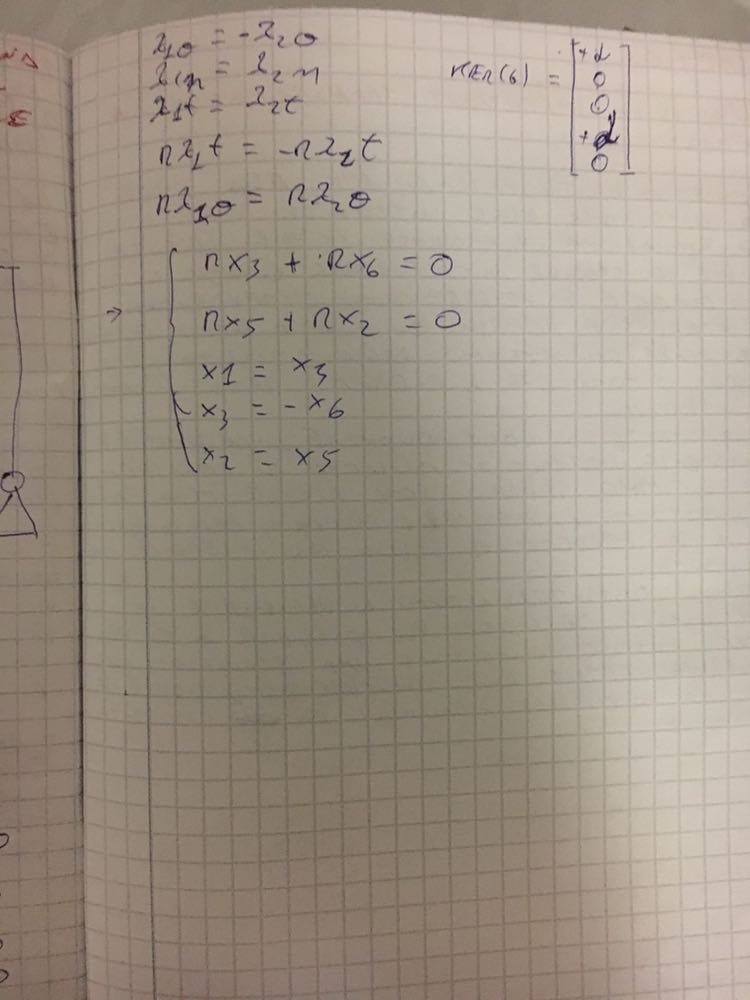 λ₁θ = -λ₂θ
λ₁n = λ₂n
λ₁t = λ₂t
rλ₁t = -rλ₂t
rλ₁θ = rλ₂θ
KER(G) = [+α 0 0 +α 0]
→ { rx3 + rx6 = 0
rx5 + rx2 = 0
x1 = x3
x3 = -x6
x2 = x5